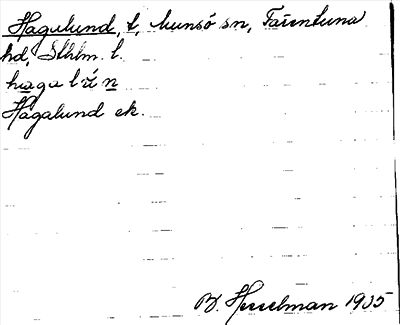 Hagulund, t, Munsö sn, Färentuna
hd, Sthlm. l.
Hagalund ek.
B. Hesselman 1935